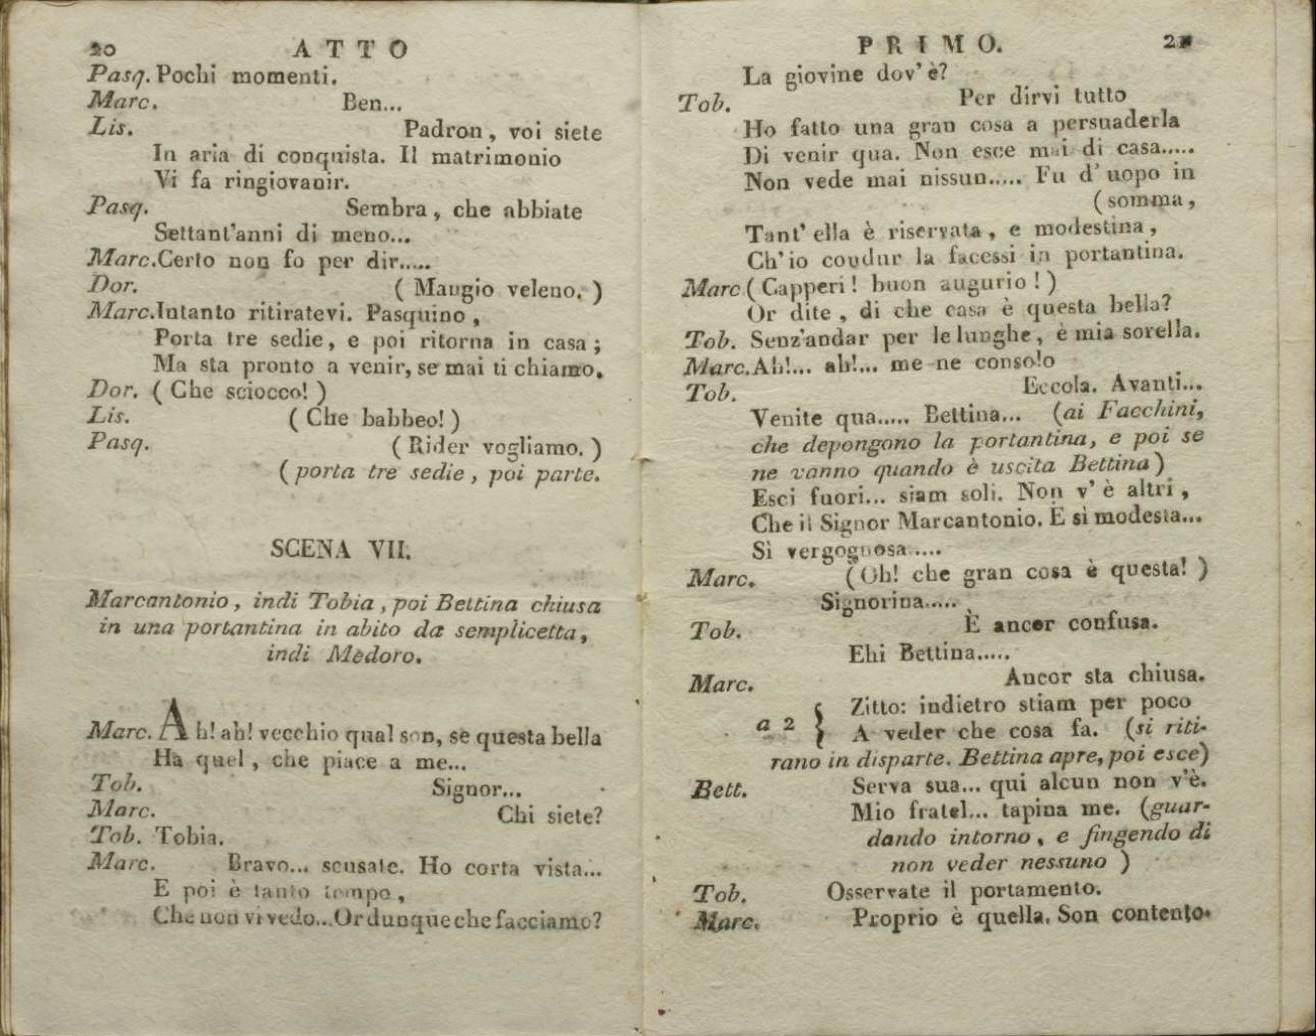 20 ATTO
Pasq. Pochi momenti.
Marc. Ben...
Lis. Padron, voi siete
In aria di conquista. Il matrimonio
Vi fa ringiovanir.
Pasq. Sembra, che abbiate
Settant'anni di meno...
Marc. Certo non fo per dir.....
Dor. ( Mangio veleno. )
Marc. Intanto ritiratevi. Pasquino,
Porta tre sedie, e poi ritorna in casa;
Ma sta pronto a venir, se mai ti chiamo.
Dor. ( Che sciocco! )
Lis. ( Che babbeo! )
Pasq. ( Rider vogliamo. )
( porta tre sedie, poi parte.
SCENA VII.
Marcantonio, indi Tobia, poi Bettina chiusa
in una portantina in abito da semplicetta,
indi Medoro.
Marc. Ah! ah! vecchio qual son, se questa bella
Ha quel, che piace a me...
Tob. Signor...
Marc. Chi siete?
Tob. Tobia.
Marc. Bravo... scusate. Ho corta vista...
E poi è tanto tempo,
Che non vi vedo... Or dunque che facciamo?
PRIMO. 21
La giovine dov'è?
Tob. Per dirvi tutto
Ho fatto una gran cosa a persuaderla
Di venir qua. Non esce mai di casa.....
Non vede mai nissun..... Fu d'uopo in
( somma,
Tant' ella è riservata, e modestina,
Ch'io condur la facessi in portantina.
Marc ( Capperi! buon augurio! )
Or dite, di che casa è questa bella?
Tob. Senz'andar per le lunghe, è mia sorella.
Marc. Ah!... ah!... me ne consolo
Tob. Eccola. Avanti...
Venite qua..... Bettina... (ai Facchini,
che depongono la portantina, e poi se
ne vanno quando è uscita Bettina)
Esci fuori... siam soli. Non v'è altri,
Che il Signor Marcantonio. È sì modesta...
Sì vergognosa.....
Marc. (Oh! che gran cosa è questa! )
Signorina.....
Tob. È ancor confusa.
Ehi Bettina.....
Marc. Ancor sta chiusa.
Zitto: indietro stiam per poco
a 2 } A veder che cosa fa. (si riti-
rano in disparte. Bettina apre, poi esce)
Bett. Serva sua... qui alcun non v'è.
Mio fratel... tapina me. (guar-
dando intorno, e fingendo di
non veder nessuno )
Tob. Osservate il portamento.
Marc. Proprio è quella. Son contento.